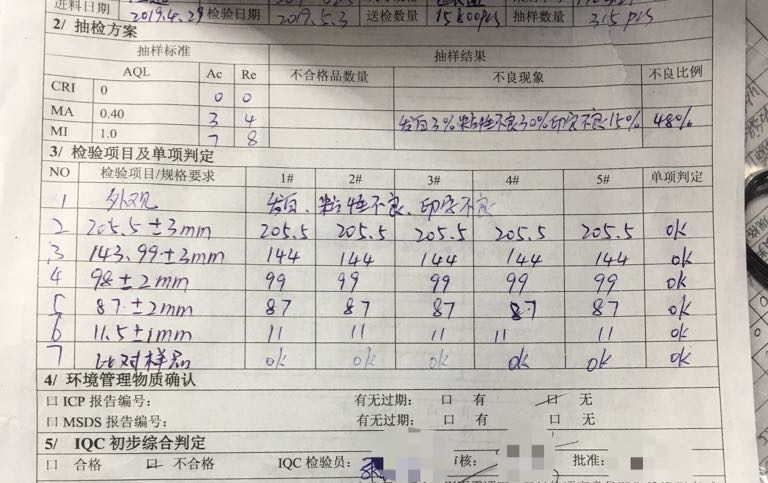 进料日期 2019.4.29 检验日期 2019.5.3 送检数量 15800pcs 抽样数量 315 pcs
2/ 抽检方案
抽样标准 抽样结果
AQL Ac Re 不合格品数量 不良现象 不良比例
CRI 0 0 0
MA 0.40 3 4 发白3%粘性不良30%印字不良15% 48%
MI 1.0 7 8
3/ 检验项目及单项判定
NO 检验项目/规格要求 1# 2# 3# 4# 5# 单项判定
1 外观 发白、粘性不良、印字不良
2 205.5±3mm 205.5 205.5 205.5 205.5 205.5 ok
3 143.99±2mm 144 144 144 144 144 ok
4 98±2mm 99 99 99 99 99 ok
5 87.±2mm 87 87 87 87 87 ok
6 11.5±1mm 11 11 11 11 11 ok
7 比对样品 ok ok ok ok ok ok
4/ 环境管理物质确认
口 ICP 报告编号: 有无过期: 口 有 口 无
口 MSDS 报告编号: 有无过期: 口 有 口 无
5/ IQC 初步综合判定
口 合格 口 不合格 IQC 检验员: 核: 批准: